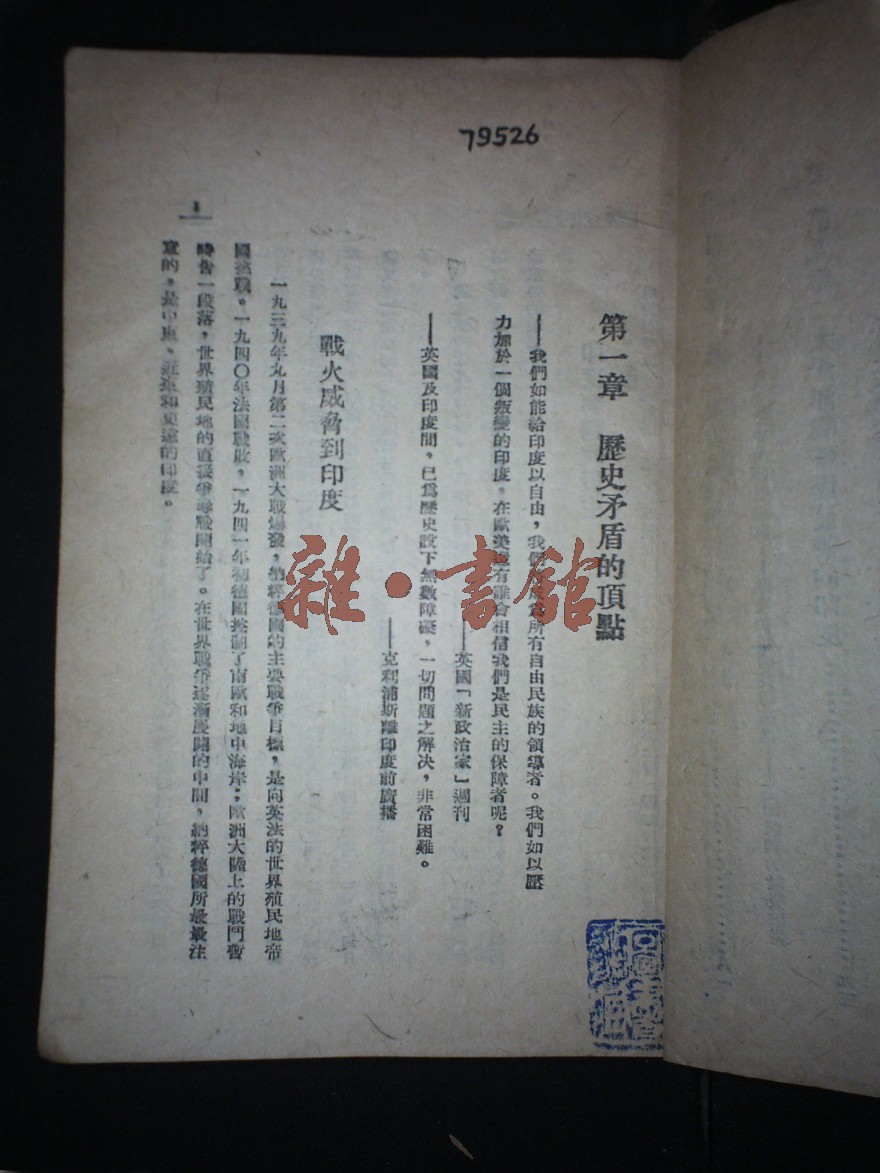 79526
第一章　歷史矛盾的頂點
——我們如能給印度以自由，我們所有自由民族的領導者。我們如以壓
力加於一個叛變的印度，在歐美有誰會相信我們是民主的保障者呢？
——英國「新政治家」週刊
——英國及印度間，已爲歷史設下無數障礙，一切問題之解決，非常困難。
——克利浦斯離印度前廣播
戰火威脅到印度
一九三九年九月第二次歐洲大戰爆發，納粹德國的主要戰爭目標，是向英法的世界殖民地帝
國挑戰。一九四〇年法國戰敗，一九四一年納德國控制了南歐和地中海岸；歐洲大陸上的戰鬥暫
時告一段落，世界殖民地的直接爭奪戰開始了。在世界戰爭逐漸展開的中間，納粹德國所最最注
意的，是中東、近東和更遠的印度。
1
雜·書館